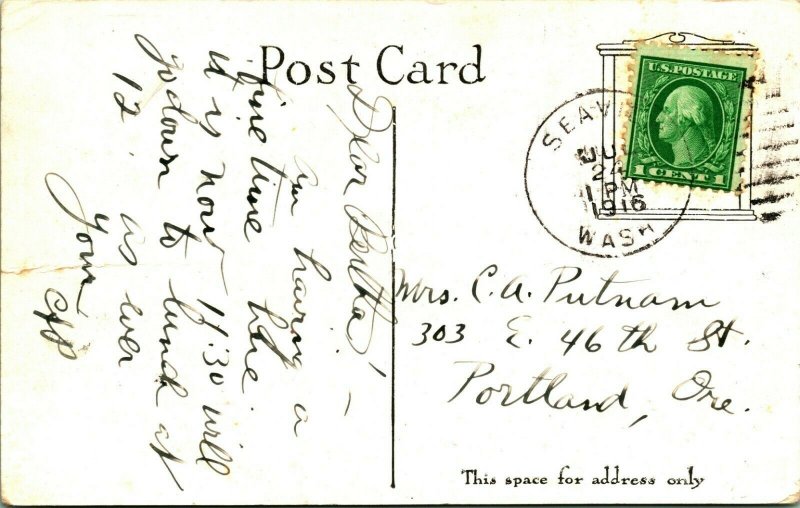 Post Card
U.S. POSTAGE
1 CENT 1
SEAV
WASH
24
1 PM
1916
Dear Bertha! –
Am having a
fine time here.
It is now 11:30 will
go down to lunch at
12. as ever
Your
Mrs. C. A. Putnam
303 E. 46th St.
Portland, Ore.
This space for address only